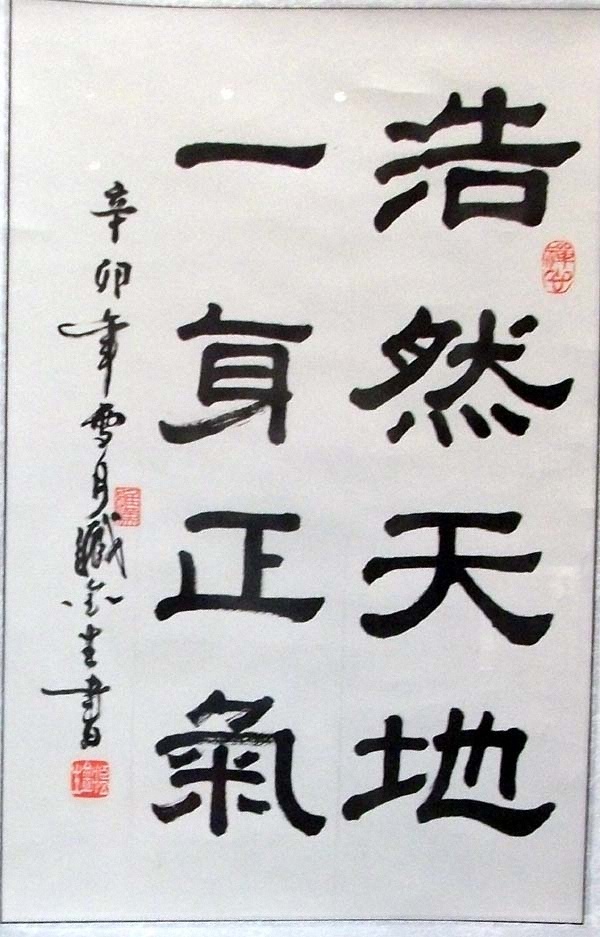 浩然天地
一身正氣
辛卯年雪月臧金生書